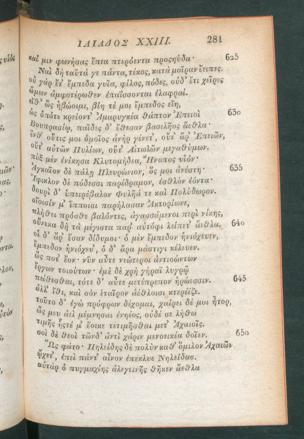 ΙΛΙΑΔΟΣ XXIII. 281
καί μιν φωνήσας ἔπεα πτερόεντα προσηύδα· 625
Ναὶ δὴ ταῦτά γε πάντα, τέκος, κατὰ μοῖραν ἔειπες.
οὐ γὰρ ἔτ' ἔμπεδα γυῖα, φίλος, πόδες, οὐδ' ἔτι χεῖρες
ὤμων ἀμφοτέρωθεν ἐπαΐσσονται ἐλαφραί.
εἴθ' ὣς ἡβώοιμι, βίη τέ μοι ἔμπεδος εἴη,
ὡς ὁπότε κρείοντ' Ἀμαρυγκέα θάπτον Ἐπειοὶ 630
Βουπρασίῳ, παῖδες δ' ἔθεσαν βασιλῆος ἄεθλα·
ἔνθ' οὔτις μοι ὁμοῖος ἀνὴρ γένετ', οὔτ' ἄρ' Ἐπειῶν,
οὔτ' αὐτῶν Πυλίων, οὔτ' Αἰτωλῶν μεγαθύμων.
πὺξ μὲν ἐνίκησα Κλυτομήδεα, Ἤνοπος υἱόν·
Ἀγκαῖον δὲ πάλῃ Πλευρώνιον, ὅς μοι ἀνέστη· 635
Ἴφικλον δὲ πόδεσσι παρέδραμον, ἐσθλὸν ἐόντα·
δουρὶ δ' ὑπειρέβαλον Φυλῆά τε καὶ Πολύδωρον.
οἴοισίν μ' ἵπποισι παρήλασαν Ἀκτορίωνε,
πλήθει πρόσθε βαλόντες, ἀγασσάμενοι περὶ νίκης,
οὕνεκα δὴ τὰ μέγιστα παρ' αὐτόφι λείπετ' ἄεθλα. 640
οἱ δ' ἄρ' ἔσαν δίδυμοι· ὁ μὲν ἔμπεδον ἡνιόχευεν,
ἔμπεδον ἡνιόχευ', ὁ δ' ἄρα μάστιγι κέλευεν.
ὥς ποτ' ἔον· νῦν αὖτε νεώτεροι ἀντιοώντων
ἔργων τοιούτων· ἐμὲ δὲ χρὴ γήραϊ λυγρῷ
πείθεσθαι, τότε δ' αὖτε μετέπρεπον ἡρώεσσιν. 645
ἀλλ' ἴθι, καὶ σὸν ἑταῖρον ἀέθλοισι κτερέϊζε.
τοῦτο δ' ἐγὼ πρόφρων δέχομαι, χαίρει δέ μοι ἦτορ,
ὥς μευ ἀεὶ μέμνησαι ἐνηέος, οὐδέ σε λήθω
τιμῆς ἧστέ μ' ἔοικε τετιμῆσθαι μετ' Ἀχαιοῖς.
σοὶ δὲ θεοὶ τῶνδ' ἀντὶ χάριν μενοεικέα δοῖεν. 650
Ὣς φάτο· Πηλείδης δὲ πολὺν καθ' ὅμιλον Ἀχαιῶν
ᾤχετ', ἐπεὶ πάντ' αἶνον ἐπέκλυε Νηλείδαο.
αὐτὰρ ὁ πυγμαχίης ἀλεγεινῆς θῆκεν ἄεθλα